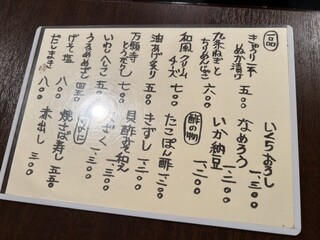 一品
きゅうり一本
ぬか漬け 五〇〇
九条ねぎと
ちりめんじゃこ 六〇〇
和風クリーム
チーズ 七〇〇
油あげ炙り 五〇〇
万願寺
とうがらし 七〇〇
いわしへしこ 七〇〇
うるめめざし 四五〇
げそ塩 八〇〇
だしまき 八〇〇
いくらおろし 一、三〇〇
なめろう 一、三〇〇
いか納豆 一、二〇〇
酢の物
たこぽん酢 一、二〇〇
きずし 一、三〇〇
貝酢みそ和え 一、三〇〇
焼さば寿し 五五〇
赤出し 三〇〇